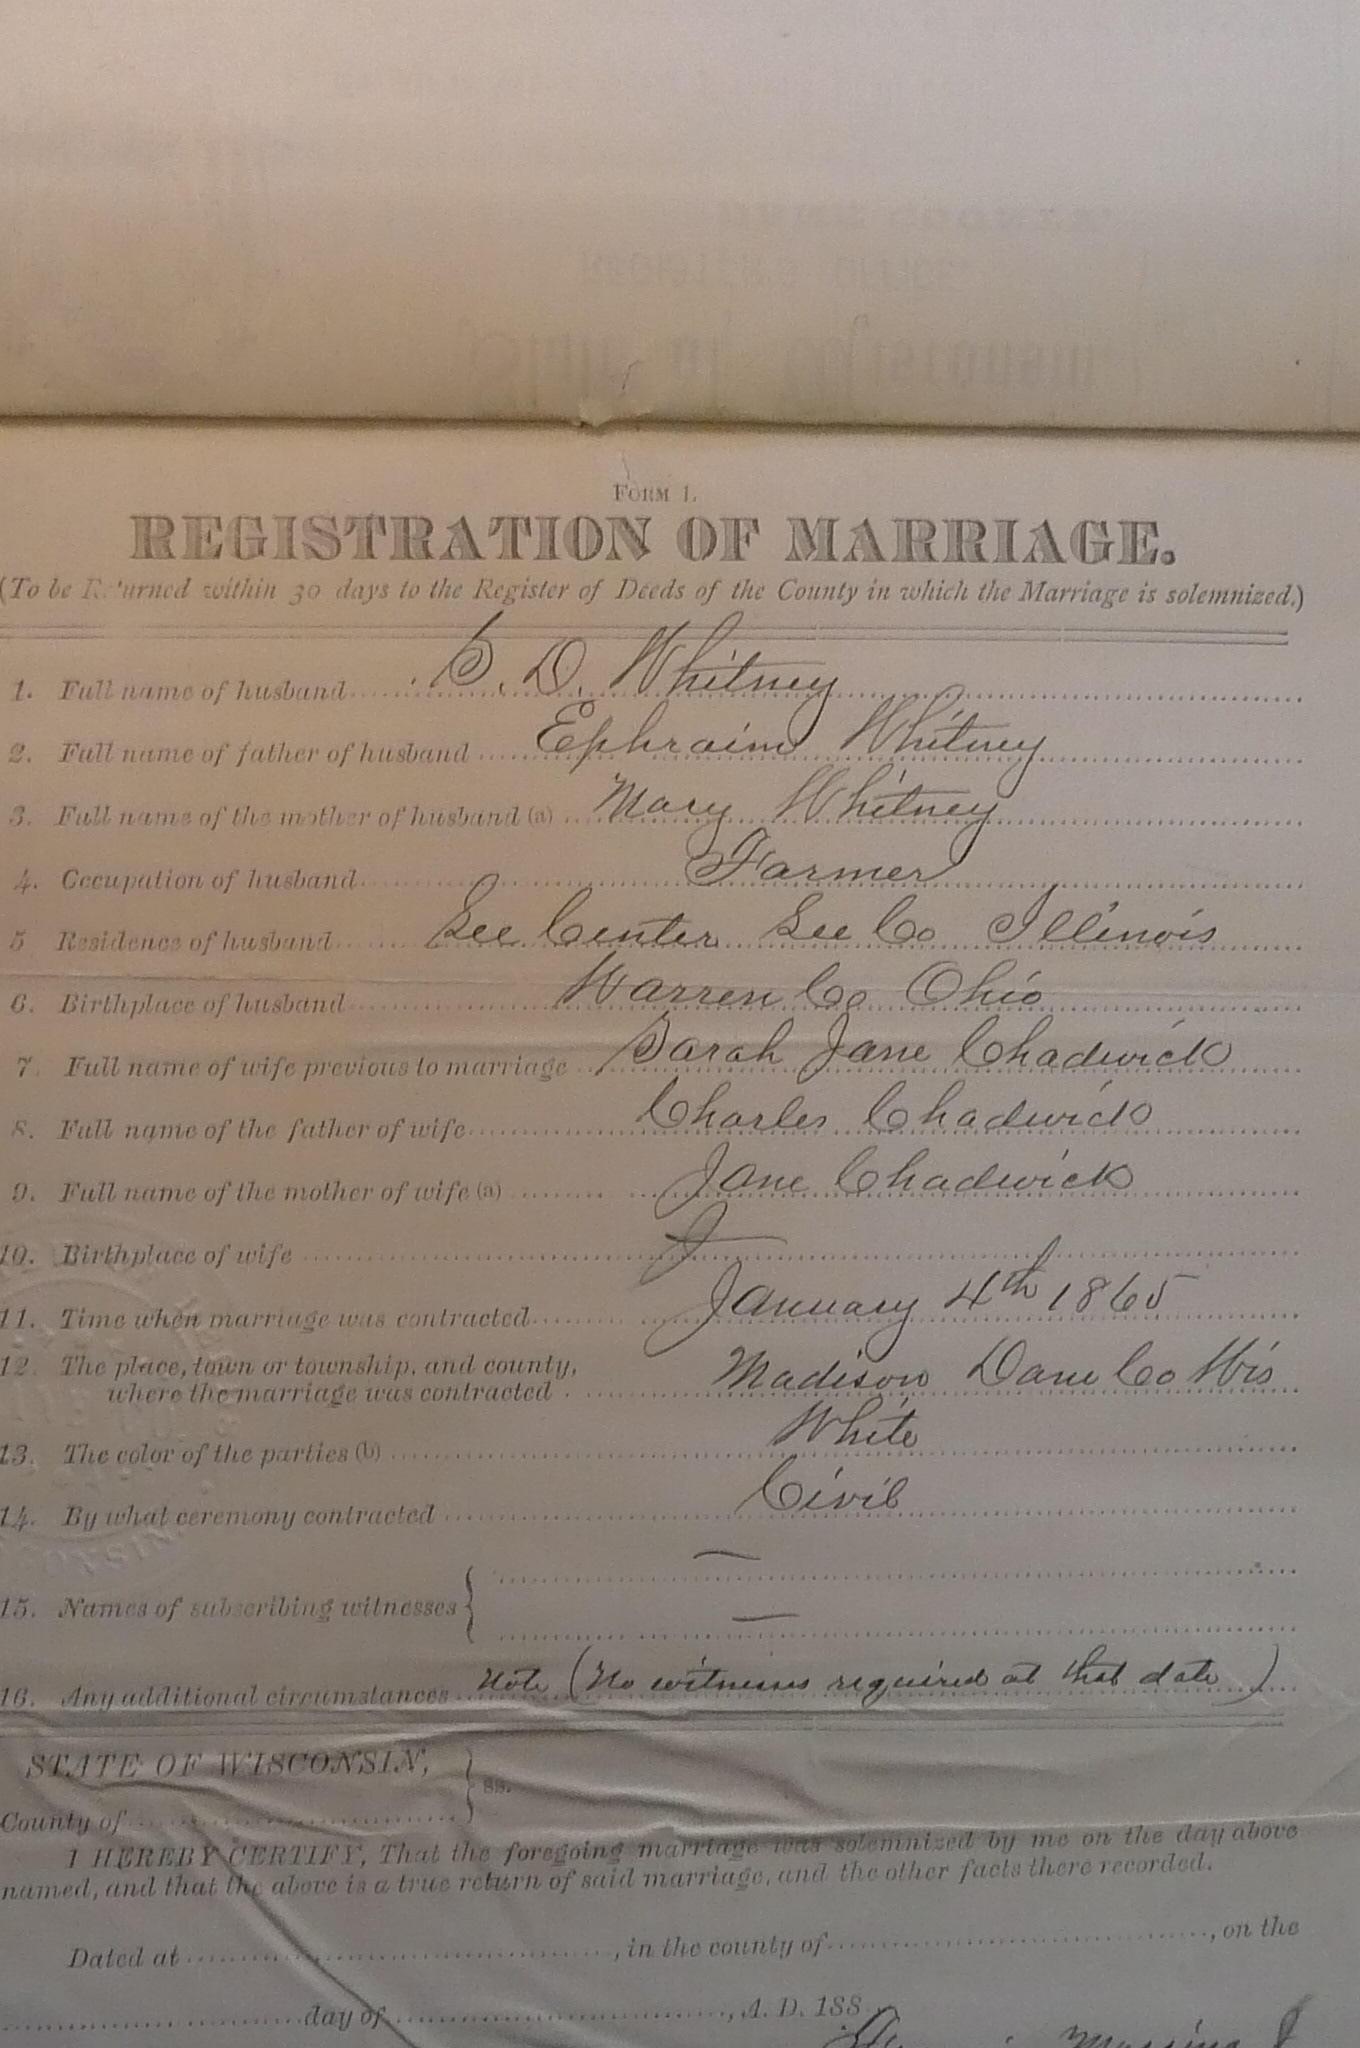 FORM 1.
REGISTRATION OF MARRIAGE.
(To be Returned within 30 days to the Register of Deeds of the County in which the Marriage is solemnized.)
1. Full name of husband S. D. Whitney
2. Full name of father of husband Ephraim Whitney
3. Full name of the mother of husband (a) Mary Whitney
4. Occupation of husband Farmer
5 Residence of husband Lee Center Lee Co Illinois
6. Birthplace of husband Warren Co Ohio
7. Full name of wife previous to marriage Sarah Jane Chadwick
8. Full name of the father of wife Charles Chadwick
9. Full name of the mother of wife (a) Jane Chadwick
10. Birthplace of wife
11. Time when marriage was contracted January 4th 1865
12. The place, town or township, and county,
where the marriage was contracted Madison Dane Co Wis
13. The color of the parties (b) White
14. By what ceremony contracted Civil
15. Names of subscribing witnesses
16. Any additional circumstances Note (No witnesses required at that date)
STATE OF WISCONSIN,
County of ss.
I HEREBY CERTIFY, That the foregoing marriage was solemnized by me on the day above
named, and that the above is a true return of said marriage, and the other facts there recorded.
Dated at , in the county of , on the
day of , A. D. 188